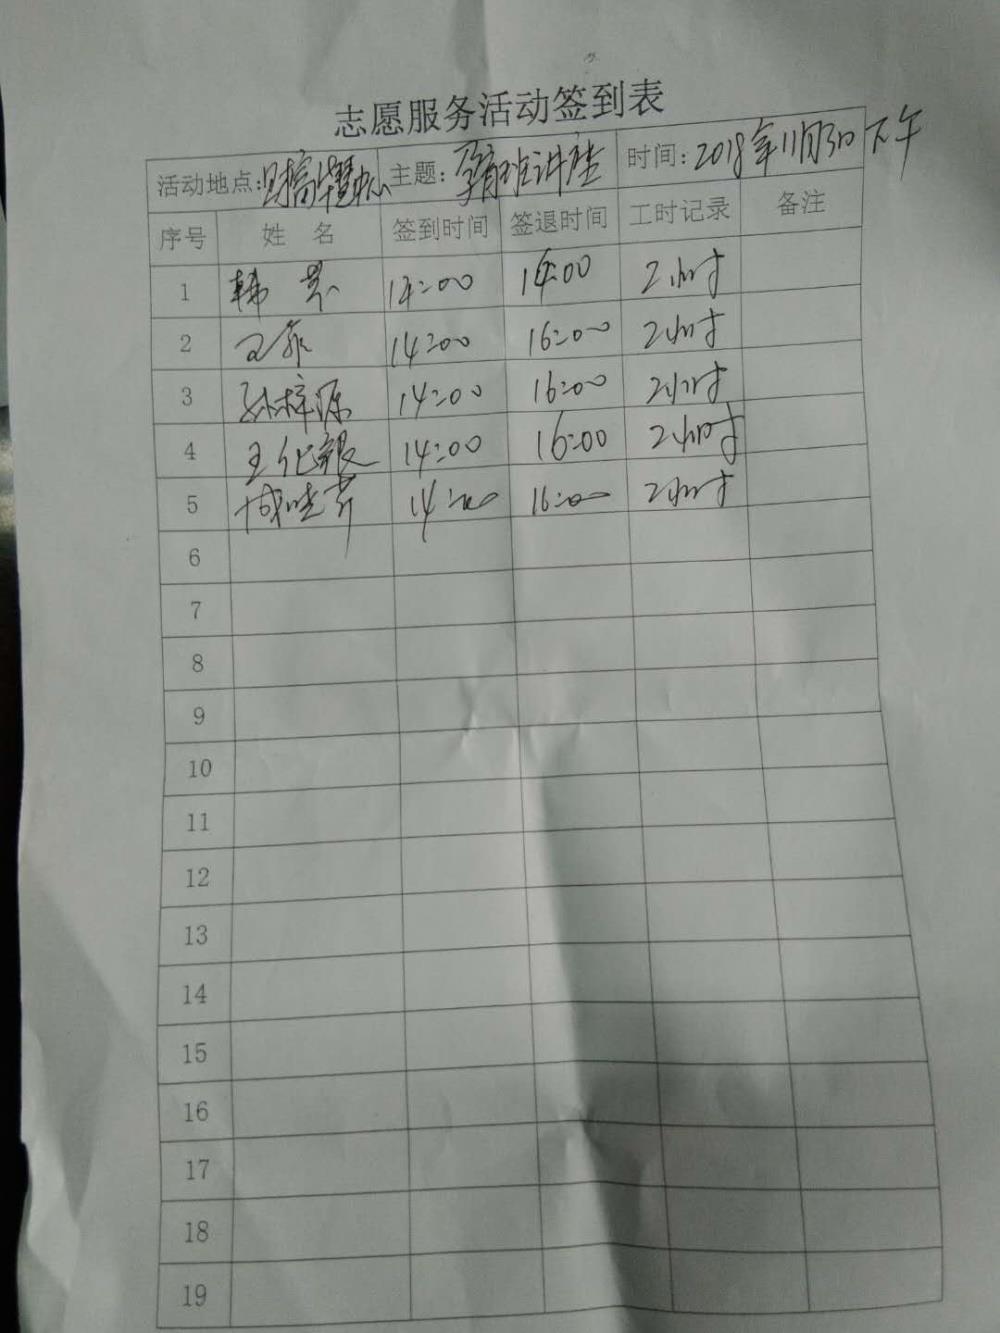 志愿服务活动签到表
活动地点: 主题: 讲座 时间: 2018年11月3日下午
序号 姓 名 签到时间 签退时间 工时记录 备注
1 韩 14:00 16:00 2小时
2 王 14:00 16:00 2小时
3 孙梓源 14:00 16:00 2小时
4 王化银 14:00 16:00 2小时
5 14:00 16:00 2小时
6
7
8
9
10
11
12
13
14
15
16
17
18
19